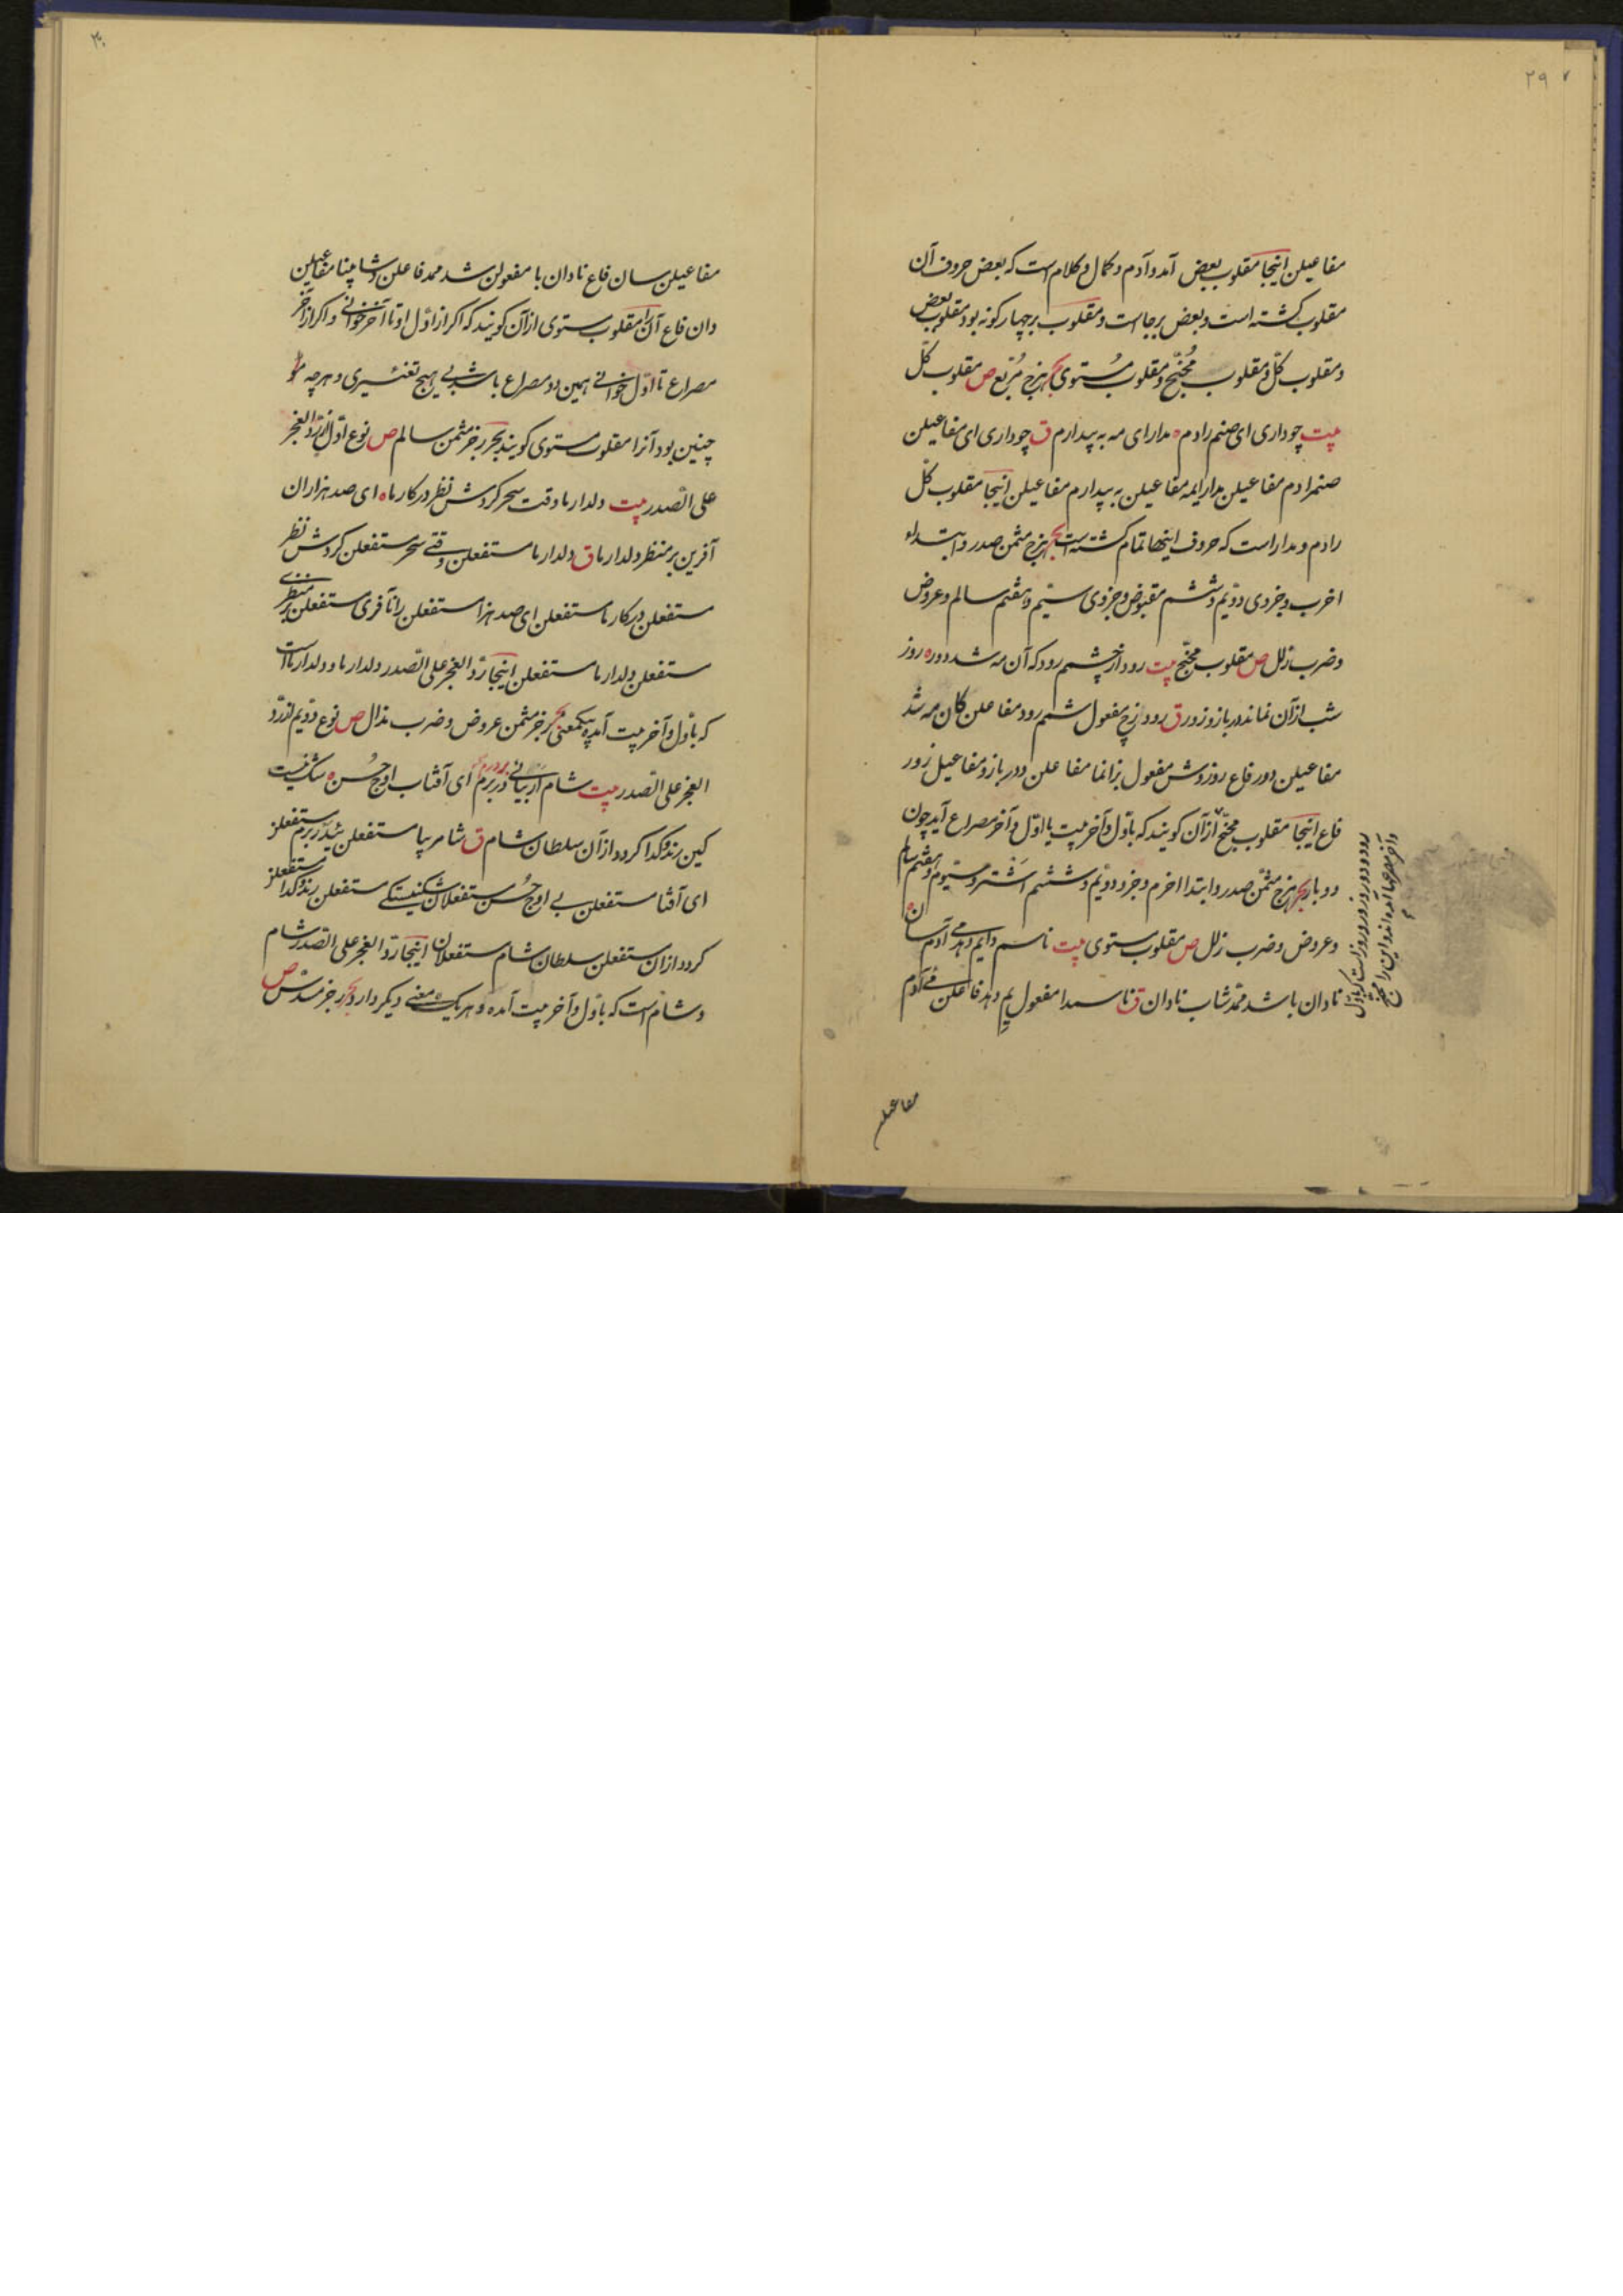 ۲۹
مفاعیلن اینجا مقلوب بعض آمد و آدم و کمال و کلام است که بعض حروف آن
مقلوب کشته است و بعض برجا است و مقلوب بر چهار کونه بود مقلوب بعض
و مقلوب کل و مقلوب مُجَنّح و مقلوب مُستوی بحر هزج مُربّع ص مقلوب کلّ
بیت چو داری ای صنم رادم ه مدارای مه به پیدارم ق چو داری ای مفاعیلن
صنم رادم مفاعیلن مدارایمه مفاعیلن به پیدارم مفاعیلن اینجا مقلوب کلّ
رادم و مدار است که حروف اینها تمام کشته است بحر هزج مثمن صدر و ابتدا
اخرب و جزوی دویم و ششم مقبوض و جزوی سیّم و هفتم سالم و عروض
و ضرب زلل ص مقلوب مجنّح بیت رود از چشمم رود که آن مه شد دور ه روز
شب از آن نماند در بازو زور ق رود مفعول شمم رود مفاعلن کان مه شد
مفاعیلن دور فاع روز و شش مفعول زانما مفاعلن ددر بازو مفاعیل زور
فاع اینجا مقلوب مجنّح از آن کویند که باوّل و آخر بیت یا اوّل و آخر مصراع آید چون
دو بار بحر هزج مثمّن صدر و ابتدا اخرم و جزو دویم و ششم اشتر و سیّوم و هفتم سالم
و عروض و ضرب زلل ص مقلوب مستوی بیت ناسم دایم دهد می آدم سان ه
نادان باشد محمّد شاب نادان ق ناسمدا مفعول یم دهد فاعلن می آدم
رود و دور و روز و زور است که باوّل
و آخر مصرعها آمده اند و این را مجنح
مفاعیلن
۳۰
مفاعیلن سان فاع نادان با مفعولن شد محمد فاعلن دشاپنا مفاعیلن
دان فاع آن را مقلوب مستوی از آن کویند که اکر از اوّل او تا آخر خوانی و اکر از آخر
مصراع تا اوّل خوانی همین دو مصراع باشد بی هیچ تغئیری و هرچه
چنین بود آنرا مقلوب مستوی کویند بحر رجز مثمن سالم ص نوع اوّل از ردّ العجز
علی الصّدر بیت دلدار ما وقت سحر کردش نظر در کار ما ه ای صد هزاران
آفرین بر منظر دلدار ما ق دلدار ما مستفعلن وقتی سحر مستفعلن کردش نظر
مستفعلن در کار ما مستفعلن ای صد هزا مستفعلن رانآفری مستفعلن نبر منظری
مستفعلن دلدار ما مستفعلن اینجا ردّ العجز علی الصّدر دلدار ما و دلدار ما است
که باوّل و آخر بیت آمده بیکمعنی بحر رجز مثمن عروض و ضرب مذال ص نوع دویم از ردّ
العجز علی الصّدر بیت شام ار بیائی در برم ای آفتاب اوج حُسن ه شک نیست
کین رند و کدا کردد از آن سلطان شام ق شامر بیا مستفعلن ئی در برم مستفعلن
ای آفتا مستفعلن بی اوج حُسن مستفعلان شکنیستکی مستفعلن رند و کدا مستفعلن
کردد ازان مستفعلن سلطان شام مستفعلان اینجا ردّ العجز علی الصّدر شام
و شام است که باوّل و آخر بیت آمده و هر یک معنی دیکر دارد بحر رجز مسدّس ص